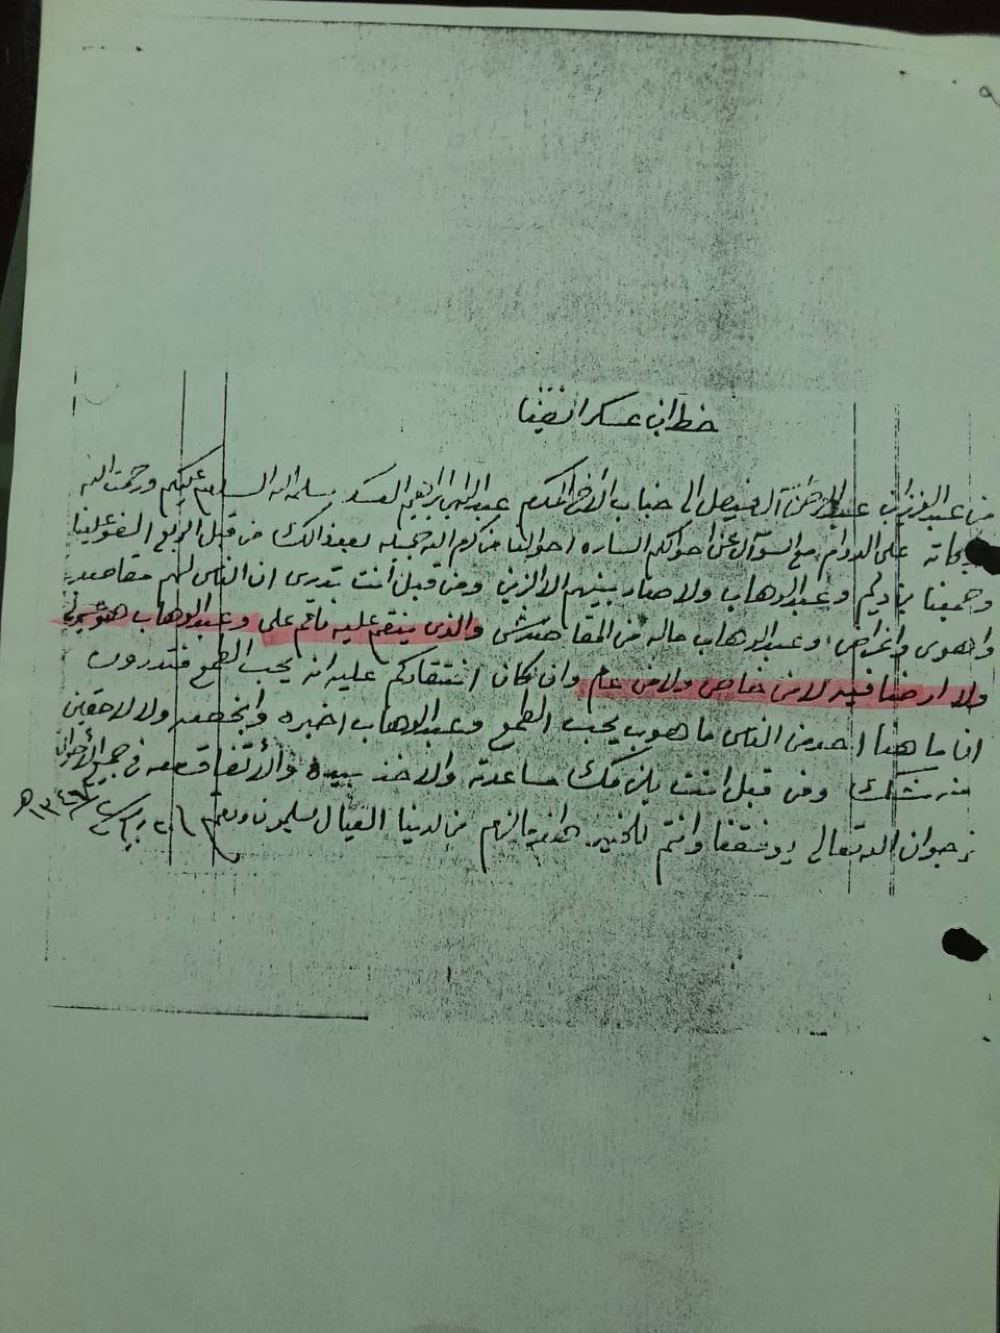 خط ابن عسكر انقيفا
من عبد العزيز بن عبد الرحمن آل فيصل الى جناب الأخ المكرم عبد الله ابراهيم العسكر سلمه الله السلام عليكم ورحمت الله
وبركاته على الدوام مع السؤال عن احوالكم الساره احوالنا من كرم الله جميله بعد ذالك من قبل الربع
وجميعنا وعبد الوهاب ولا صار بينهم الا الزين ومن قبل أنت تدرى ان الناس لهم مقاصد
واهوى واغراض وعبد الوهاب ماله من المقاصد شى والذى ينتقم عليه ناقم على وعبد الوهاب
ولا ارضا فيه لا من خاص ولا من عام وان كان انتقادكم عليه انه يحب الطمع فتدرون
ان ما هنا احد من الناس ما هوب يحب الطمع وعبد الوهاب اخبره ولا لاحقين
منه شك ومن قبل انت يلزمك مساعدته والاخذ بيده والأتفاق معه فى جميع الأحوال
نرجو ان الله تعالى يوفقنا وانتم للخير هذا مالزم من لدينا العيال يسلمون ودمتم